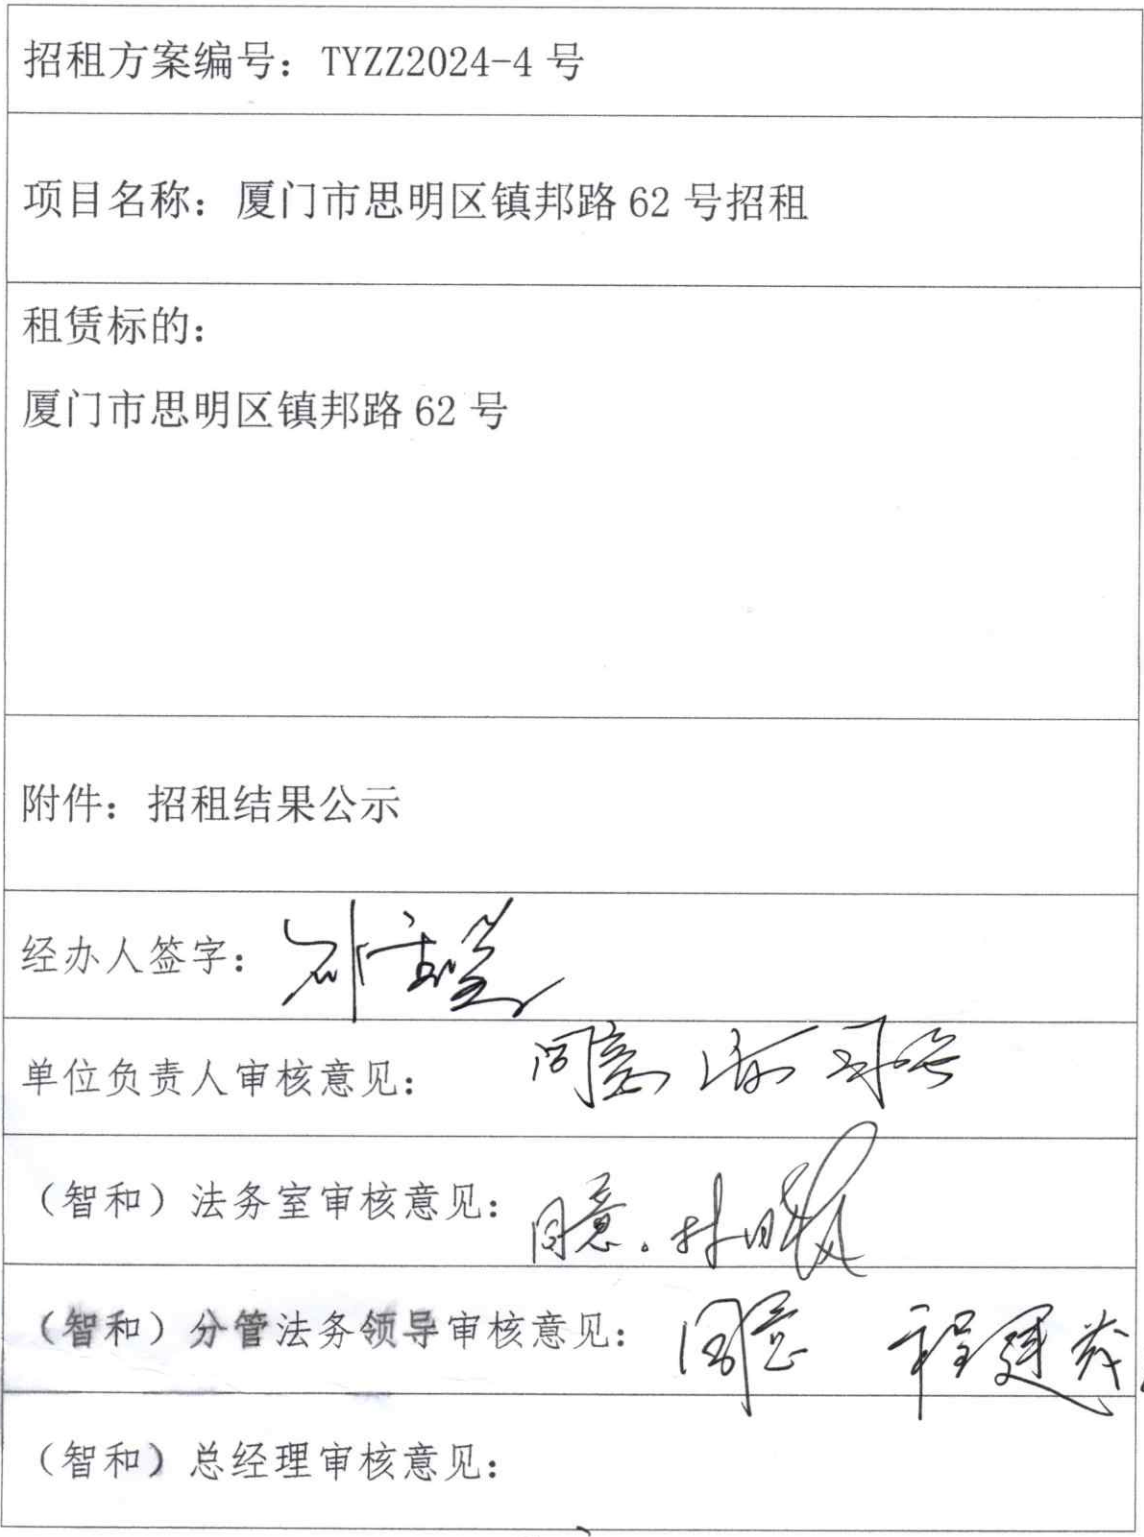 招租方案编号：TYZZ2024-4号
项目名称：厦门市思明区镇邦路62号招租
租赁标的：
厦门市思明区镇邦路62号
附件：招租结果公示
经办人签字：
单位负责人审核意见： 同意
（智和）法务室审核意见： 同意。林
（智和）分管法务领导审核意见： 同意 程建茂
（智和）总经理审核意见：